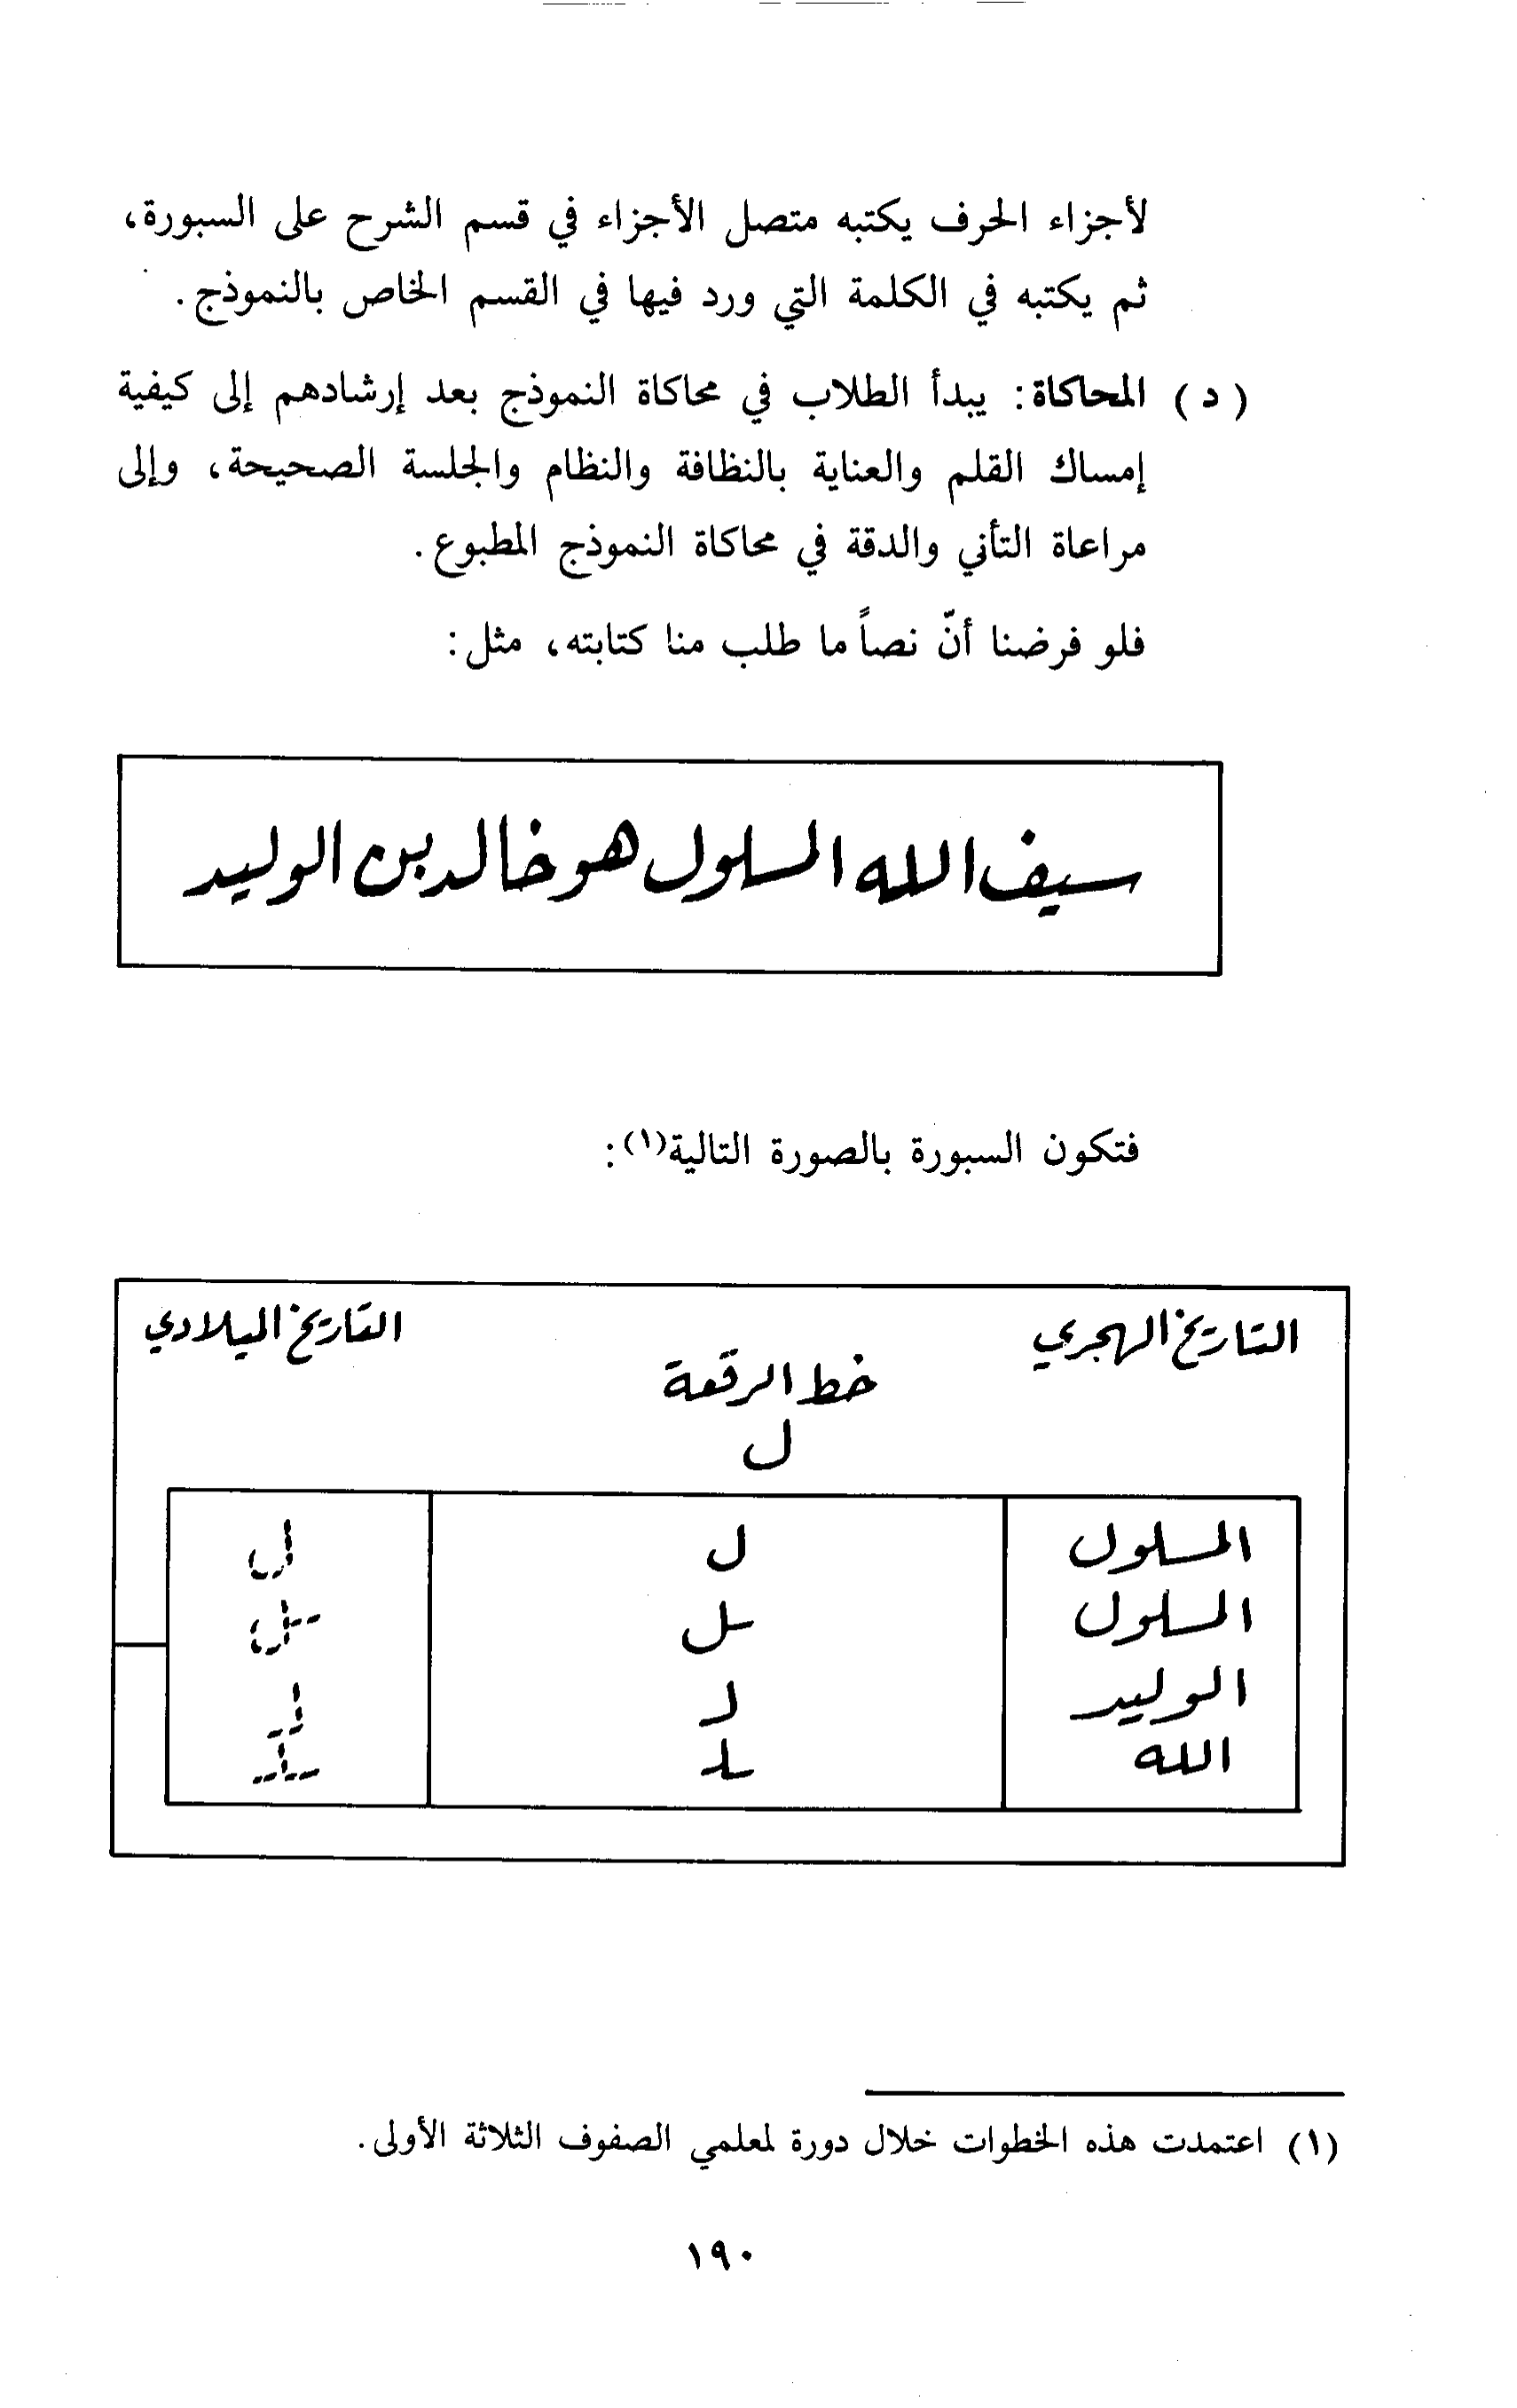 لأجزاء الحرف يكتبه متصل الأجزاء في قسم الشرح على السبورة،
ثم يكتبه في الكلمة التي ورد فيها في القسم الخاص بالنموذج.
(د) المحاكاة: يبدأ الطلاب في محاكاة النموذج بعد إرشادهم إلى كيفية
إمساك القلم والعناية بالنظافة والنظام والجلسة الصحيحة، وإلى
مراعاة التأني والدقة في محاكاة النموذج المطبوع.
فلو فرضنا أنّ نصاً ما طلب منا كتابته، مثل:
سيف الله المسلول هو خالد بن الوليد
فتكون السبورة بالصورة التالية(١):
التاريخ الهجري التاريخ الميلادي
خط الرقعة
ل
المسلول ل ل
المسلول ـل ـل
الوليد لـ لـ
الله ـلـ ـلـ
(١) اعتمدت هذه الخطوات خلال دورة لمعلمي الصفوف الثلاثة الأولى.
١٩٠